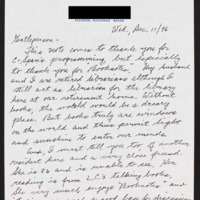 Wed., Dec. 11/96
Gentlepersons—
This note comes to thank you for
C-Span's programming, but especially
to thank you for "Booknotes". My husband
and I are retired librarians although I
still act as librarian for the library
here at our retirement home. Without
books, the world would be a dreary
place. But books truly are windows
on the world and thus permit light
and sunshine to enter our minds.
And, I must tell you too, of another
resident here and a very close friend.
She is 86 and is unable to see. Her
reading is from L.C.'s talking books.
She very much enjoys "Booknotes" and